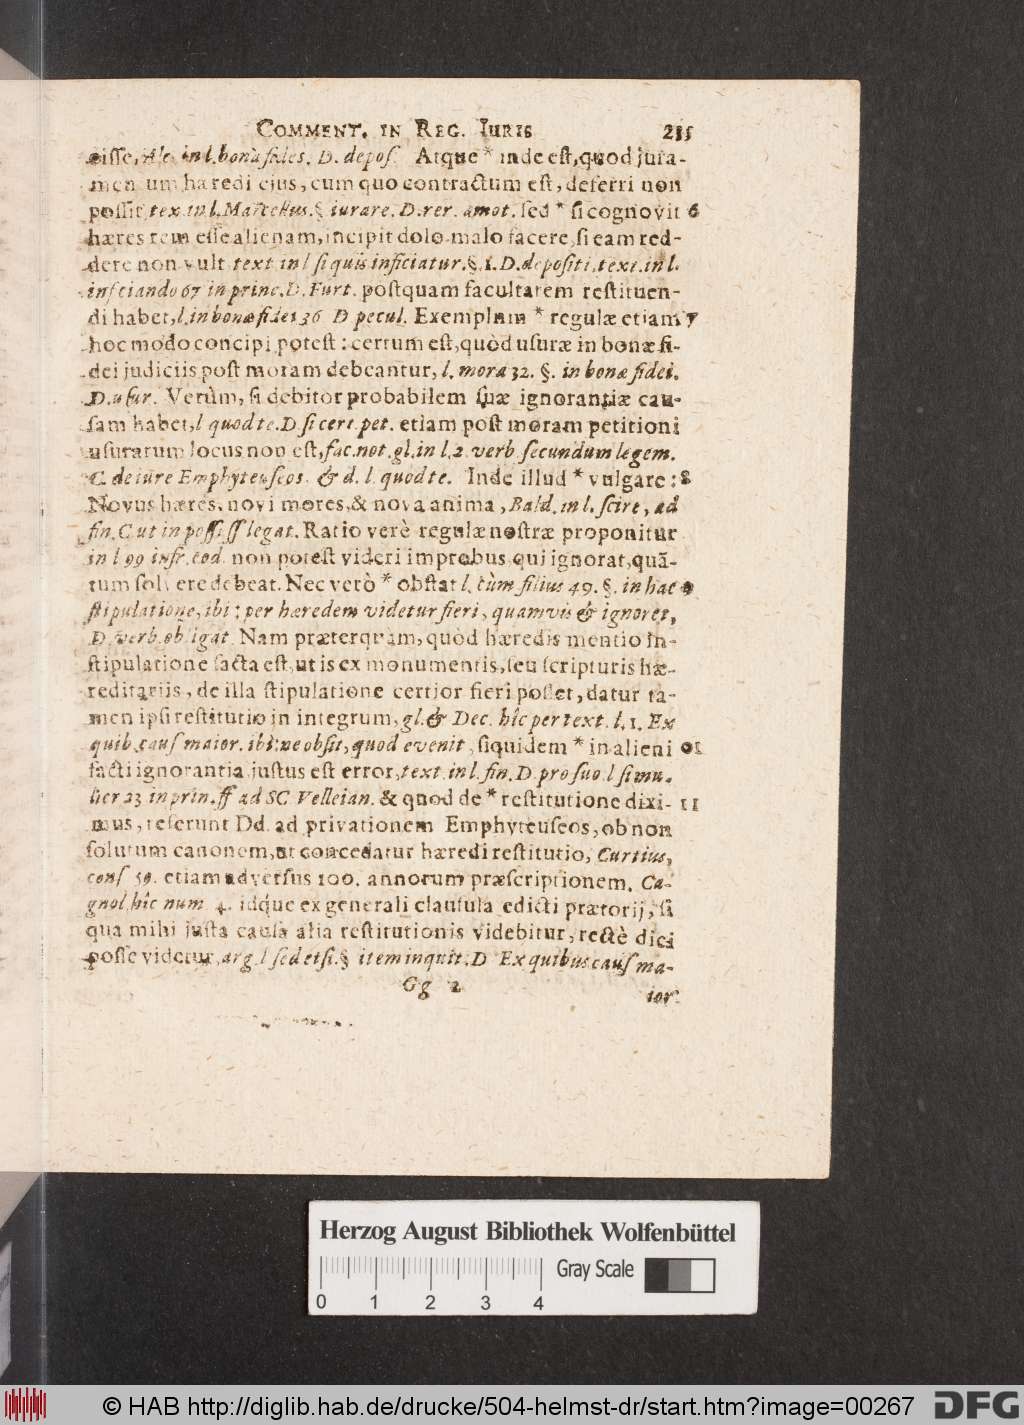 COMMENT. IN REG. IURIS 235
cisse, Alc. in l. bonâ fides. D. depos. Atque * inde est, quod jura-
mentum hæredi ejus, cum quo contractum est, deferri non
possit tex. in l. Marcellus. §. iurare. D. rer. amot. sed * si cognovit 6
hæres rem esse alienam, incipit dolo malo facere, si eam red-
dere non vult text. in l. si quis inficiatur. §. 1. D. depositi, text. in l.
inficiando 67 in princ. D. Furt. postquam facultatem restituen-
di habet, l. in bonæ fidei 36 D pecul. Exemplum * regulæ etiam 7
hoc modo concipi potest: certum est, quòd usuræ in bonæ fi-
dei judiciis post moram debeantur, l. mora 32. §. in bonæ fidei.
D. usur. Verùm, si debitor probabilem suæ ignorantiæ cau-
sam habet, l quod te. D. si cert. pet. etiam post moram petitioni
usurarum locus non est, fac. not. gl. in l. 2. verb. secundum legem.
C. de iure Emphyteuseos. & d. l. quod te. Inde illud * vulgare: 8
Novus hæres, novi mores, & nova anima, Bald. in l. scire, ad
fin. C. ut in poss. ss legat. Ratio verè regulæ nostræ proponitur
in l 99 infr. eod. non potest videri improbus qui ignorat, quã-
tum solvere debeat. Nec verò * obstat l. cùm filius 49. §. in hac 9
stipulatione, ibi: per hæredem videtur fieri, quamvis & ignoret,
D. verb. obligat. Nam præterquam, quòd hæredis mentio in-
stipulatione facta est, ut is ex monumentis, seu scripturis hæ-
reditariis, de illa stipulatione certior fieri posset, datur ta-
men ipsi restitutio in integrum, gl. & Dec. hîc per text. l. 1. Ex
quib. caus maior. ibi: ne obsit, quod evenit, siquidem * in alieni 01
facti ignorantia justus est error, text. in l. fin. D pro suo. l si mu-
lier 23 in prin. ff ad SC. Velleian. & quod de * restitutione dixi- 11
mus, referunt Dd. ad privationem Emphyteuseos, ob non
solutum canonem, ut concedatur hæredi restitutio, Curtius,
cons 59. etiam adversus 100. annorum præscriptionem. Ca-
gnol hîc num 4. idque ex generali clausula edicti prætorij, si
qua mihi justa causa alia restitutionis videbitur, rectè dici
posse videtur, arg. l sed etsi. § item inquit. D Ex quibus caus ma-
Gg 2 ior.
Herzog August Bibliothek Wolfenbüttel
Gray Scale
0 1 2 3 4
© HAB http://diglib.hab.de/drucke/504-helmst-dr/start.htm?image=00267 DFG